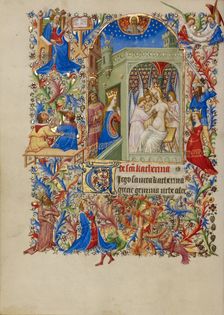 De sancta katherina
virgo sancta katherina
grecie gemma urbe alex